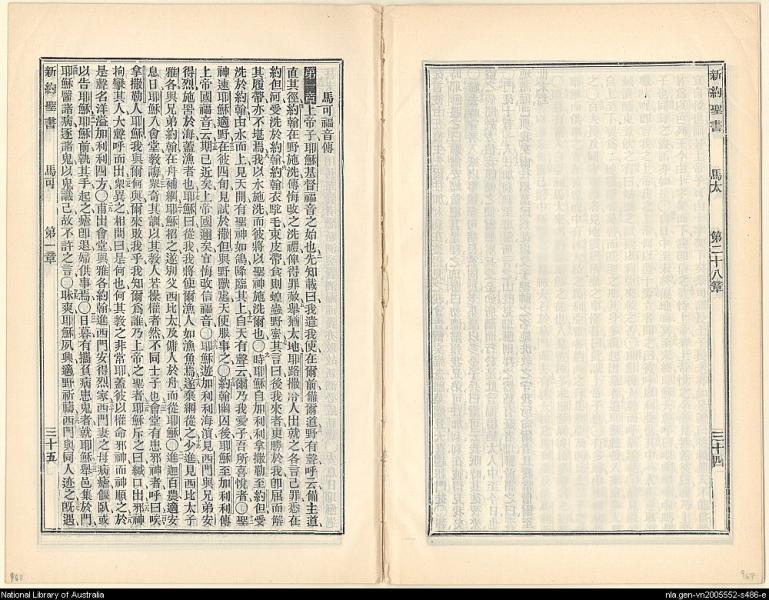 新約聖書 馬太 第二十八章 三十四
馬可福音傳
第一章 上帝子耶穌基督福音之始也先知載曰我遣我使在爾前備爾道野有聲呼云備主道
直其徑約翰在野施洗傳悔改之洗禮俾得罪赦舉猶太地耶路撒冷人出就之各言己罪悉在
約但河受洗於約翰約翰衣駝毛束皮帶食則蝗蟲野蜜其言曰後我來者更勝於我卽屈而解
其履帶亦不堪焉我以水施洗而彼將以聖神施洗爾也〇時耶穌自加利利拿撒勒至約但受
洗於約翰由水而上見天開有聖神如鴿降臨其上自天有聲云爾乃我愛子吾所喜悅者〇聖
神速耶穌適野在彼四旬見試於撒但與野獸處天使服事之〇約翰幽囚後耶穌至加利利傳
上帝國福音云期已近矣上帝國邇矣宜悔改信福音〇耶穌遊加利利海濱見西門與兄弟安
得烈施罟於海蓋漁者也耶穌曰從我我將使爾漁人如漁魚焉遂棄網從之少進見西比太子
雅各與兄弟約翰在舟補網耶穌招之遂別父西比太及傭人於舟而從耶穌〇進迦百農適安
息日耶穌入會堂教誨眾奇其訓以其教人若操權者然不同士子也會堂有患邪神者呼曰唉
拿撒勒人耶穌我與爾何與爾來敗我乎我知爾爲誰乃上帝之聖者耶穌斥之曰緘口出邪神
拘攣其人大聲呼而出眾異之相問曰是何也何其教之非常耶蓋彼以權命邪神而神順之於
是聲名洋溢加利利四方〇甫出會堂與雅各約翰進西門安得烈家西門妻之母病瘧偃臥或
以告耶穌耶穌前執其手起之瘧卽退婦供事焉〇日暮有攜負病患鬼者就耶穌舉邑集於門
耶穌醫諸病逐諸鬼以鬼識己故不許之言〇昧爽耶穌夙興適野祈禱西門與同人跡之旣遇
新約聖書 馬可 第一章 三十五
National Library of Australia
nla.gen-vn2005552-s486-e